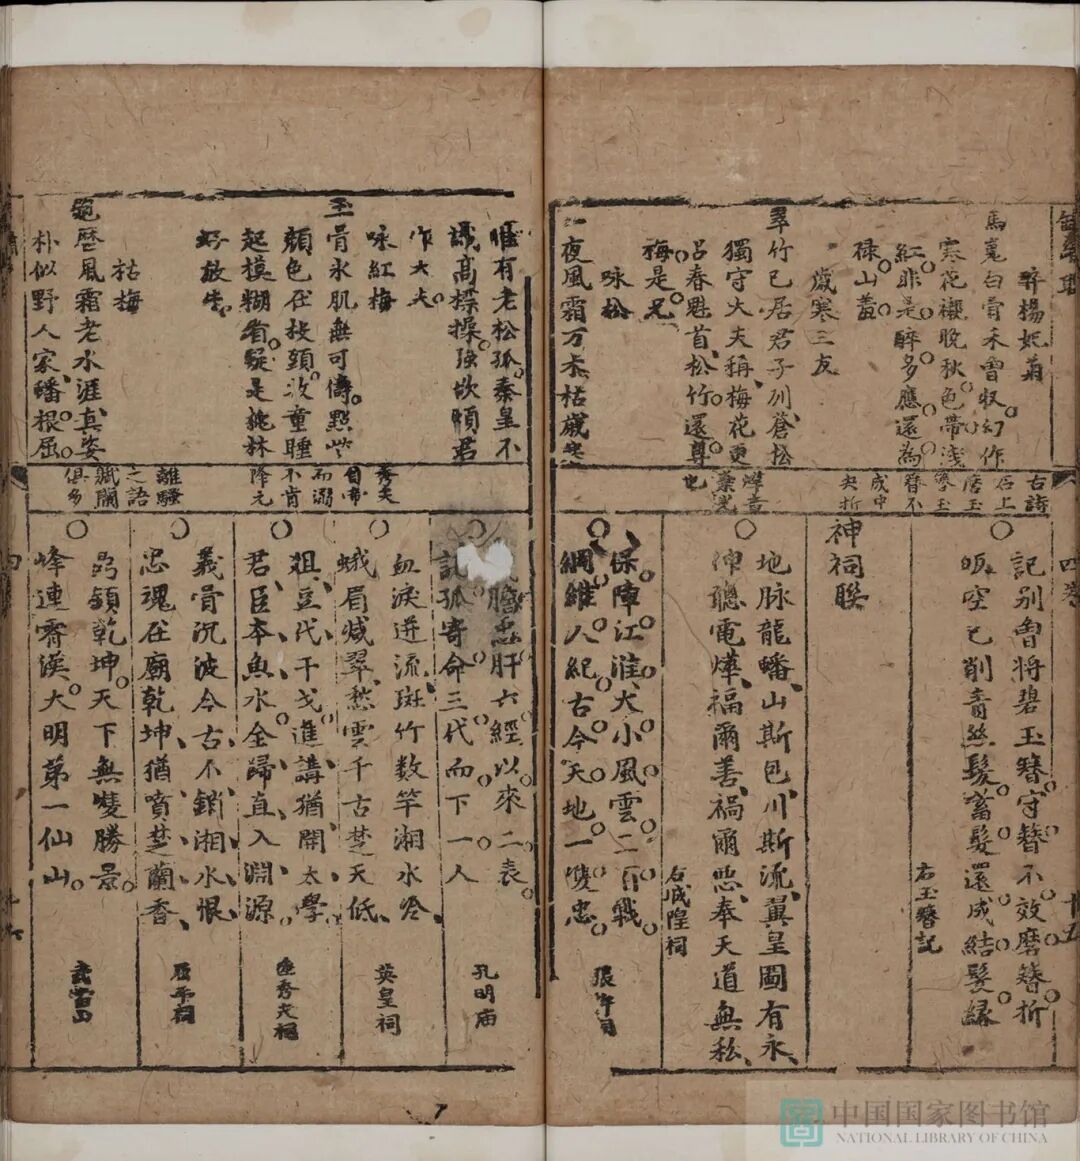 醉楊妃菊
馬嵬白骨未曾收幻作
寒花襯晚秋色帶淺
紅非是醉多應還為
祿山羞
歲寒三友
翠竹已居君子列蒼松
獨守大夫稱梅花更
占春魁首松竹還尊
梅是兄
咏松
一夜風霜万木枯歲寒
惟有老松孤秦皇不
識高標操強欲煩君
作大夫
咏紅梅
玉骨氷肌無可儔點些
顏色在枝頭牧童睡
起模糊看疑是桃林
好放牛
枯梅
飽歷風霜老水涯真姿
朴似野人家蟠根屈
古詩
石上
磨玉
簪玉
簪不
成中
央折
也
秀夫
負帝
而溺
不肯
降元
離騷
之語
賦蘭
俱多
四卷
十五
記别曾將碧玉簪守簪不效磨簪折
皈空已削青絲髮蓄髮還成結髮縁
右玉簪記
神祠聮
地脉龍蟠山斯色川斯流冀皇圖有永
俾聽電燁福爾善禍爾惡奉天道無私
右城隍祠
保障江淮大小風雲二百戰
綱維人紀古今天地一雙忠
張許祠
膽忠肝六經以來二表
託孤寄命三代而下一人
孔明庙
血淚迸流斑竹数竿湘水冷
蛾眉減翠愁雲千古楚天低
英皇祠
俎豆代干戈進講猶開太學
君臣本魚水全歸直入淵源
陸秀夫祠
義骨沉波今古不銷湘水恨
忠魂在廟乾坤猶噴楚蘭香
屈平祠
乾坤天下無雙勝景
峰連霄漢大明第一仙山
武當山
中国国家图书馆
NATIONAL LIBRARY OF CHINA